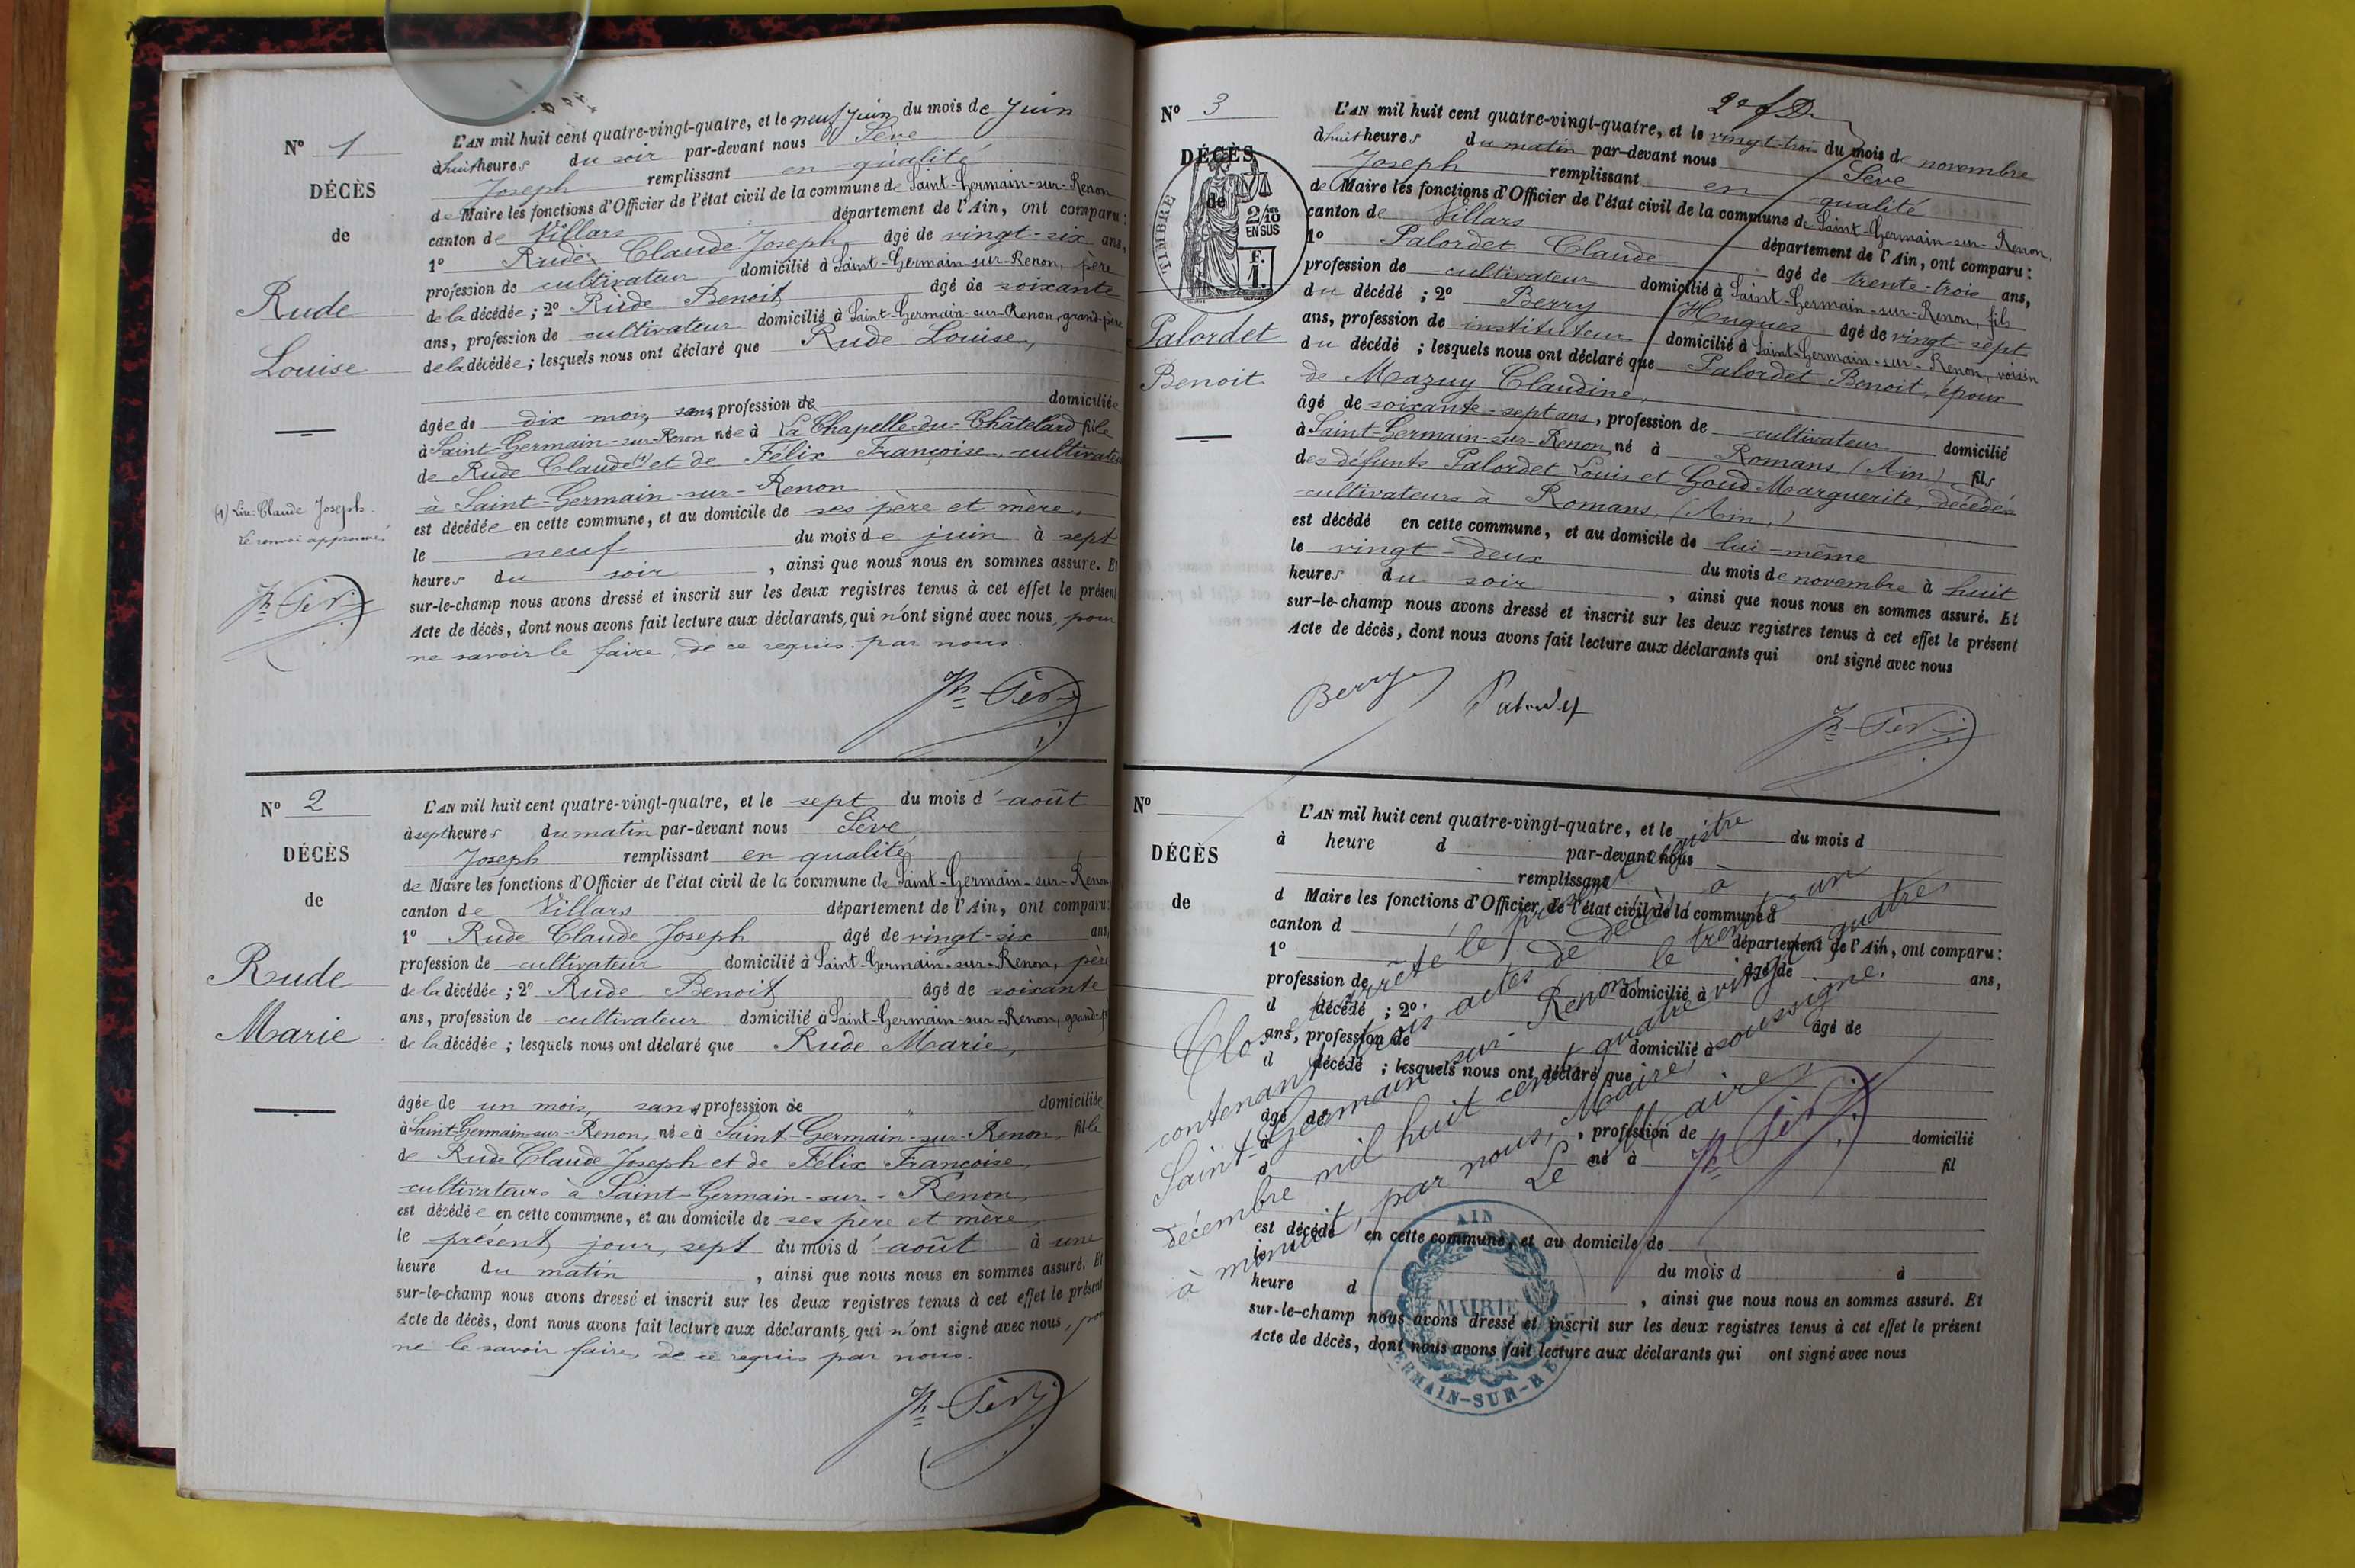 N° 1
DÉCÈS
de
Rude
Louise
L'AN mil huit cent quatre-vingt-quatre, et le neuf juin du mois de Juin
à huit heures du soir par-devant nous Sève
Joseph remplissant en qualité
de Maire les fonctions d'Officier de l'état civil de la commune de Saint-Germain-sur-Renon
canton de Villars département de l'Ain, ont comparu :
1° Rude Claude Joseph âgé de vingt-six ans,
profession de cultivateur domicilié à Saint-Germain-sur-Renon, père
de la décédée ; 2° Rude Benoit âgé de soixante
ans, profession de cultivateur domicilié à Saint-Germain-sur-Renon, grand-père
de la décédée ; lesquels nous ont déclaré que Rude Louise,
domiciliée
âgée de dix mois, sans profession de
à Saint-Germain-sur-Renon née à La Chapelle-du-Châtelard fille
de Rude Claude (1) et de Félix Françoise, cultivateurs
à Saint-Germain-sur-Renon
est décédée en cette commune, et au domicile de ses père et mère,
le neuf du mois de juin à sept
heures du soir , ainsi que nous nous en sommes assuré. Et
sur-le-champ nous avons dressé et inscrit sur les deux registres tenus à cet effet le présent
Acte de décès, dont nous avons fait lecture aux déclarants, qui n'ont signé avec nous, pour
ne savoir le faire, de ce requis par nous.
Jh Sève
(1) Lire: Claude Joseph.
Le renvoi approuvé,
Jh Sève
N° 2
DÉCÈS
de
Rude
Marie
L'AN mil huit cent quatre-vingt-quatre, et le sept du mois d'août
à sept heures du matin par-devant nous Sève
Joseph remplissant en qualité
de Maire les fonctions d'Officier de l'état civil de la commune de Saint-Germain-sur-Renon
canton de Villars département de l'Ain, ont comparu:
1° Rude Claude Joseph âgé de vingt-six ans,
profession de cultivateur domicilié à Saint-Germain-sur-Renon, père
de la décédée ; 2° Rude Benoit âgé de soixante
ans, profession de cultivateur domicilié à Saint-Germain-sur-Renon, grand-p
de la décédée ; lesquels nous ont déclaré que Rude Marie,
âgée de un mois, sans profession de " domiciliée
à Saint-Germain-sur-Renon, née à Saint-Germain-sur-Renon, fille
de Rude Claude Joseph et de Félix Françoise,
cultivateurs à Saint-Germain-sur-Renon,
est décédée en cette commune, et au domicile de ses père et mère,
le présent jour, sept du mois d'août à une
heure du matin , ainsi que nous nous en sommes assuré. Et
sur-le-champ nous avons dressé et inscrit sur les deux registres tenus à cet effet le présent
Acte de décès, dont nous avons fait lecture aux déclarants, qui n'ont signé avec nous, pour
ne le savoir faire, de ce requis par nous.
Jh Sève
2e f D
N° 3
DÉCÈS
de
TIMBRE
2/10
EN SUS
F.
1.
Palordet
Benoit
L'AN mil huit cent quatre-vingt-quatre, et le vingt-trois du mois de novembre
à huit heures du matin par-devant nous Sève
Joseph remplissant en qualité
de Maire les fonctions d'Officier de l'état civil de la commune de Saint-Germain-sur-Renon,
canton de Villars département de l'Ain, ont comparu :
1° Palordet Claude âgé de trente-trois ans,
profession de cultivateur domicilié à Saint-Germain-sur-Renon, fils
du décédé ; 2° Berry Hugues âgé de vingt-sept
ans, profession de instituteur domicilié à Saint-Germain-sur-Renon, voisin
du décédé ; lesquels nous ont déclaré que Palordet Benoit, époux
de Mazuy Claudine,
âgé de soixante-sept ans, profession de cultivateur domicilié
à Saint-Germain-sur-Renon, né à Romans (Ain) fils
des défunts Palordet Louis et Goud Marguerite, décédés
cultivateurs à Romans, (Ain,)
est décédé en cette commune, et au domicile de lui-même
le vingt-deux du mois de novembre à huit
heures du soir , ainsi que nous nous en sommes assuré. Et
sur-le-champ nous avons dressé et inscrit sur les deux registres tenus à cet effet le présent
Acte de décès, dont nous avons fait lecture aux déclarants qui ont signé avec nous
Berry Palordet Jh Sève
N°
DÉCÈS
de
L'AN mil huit cent quatre-vingt-quatre, et le du mois d
à heure d par-devant nous
remplissant
d Maire les fonctions d'Officier de l'état civil de la commune d
canton d département de l'Ain, ont comparu :
1° âgé de ans,
profession de domicilié à
d décédé ; 2° âgé de
ans, profession de domicilié à
d décédé ; lesquels nous ont déclaré que
âgé de , profession de domicilié
à né à fil
d
est décédé en cette commune, et au domicile de
le du mois d à
heure d , ainsi que nous nous en sommes assuré. Et
sur-le-champ nous avons dressé et inscrit sur les deux registres tenus à cet effet le présent
Acte de décès, dont nous avons fait lecture aux déclarants qui ont signé avec nous
Clos et arrêté le présent registre
contenant trois actes de décès à
Saint-Germain-sur-Renon, le trente-un
décembre mil huit cent quatre vingt quatre
à minuit, par nous, Maire, soussigné.
Le Maire,
Jh Sève
AIN
MAIRIE
GERMAIN-SUR-RE